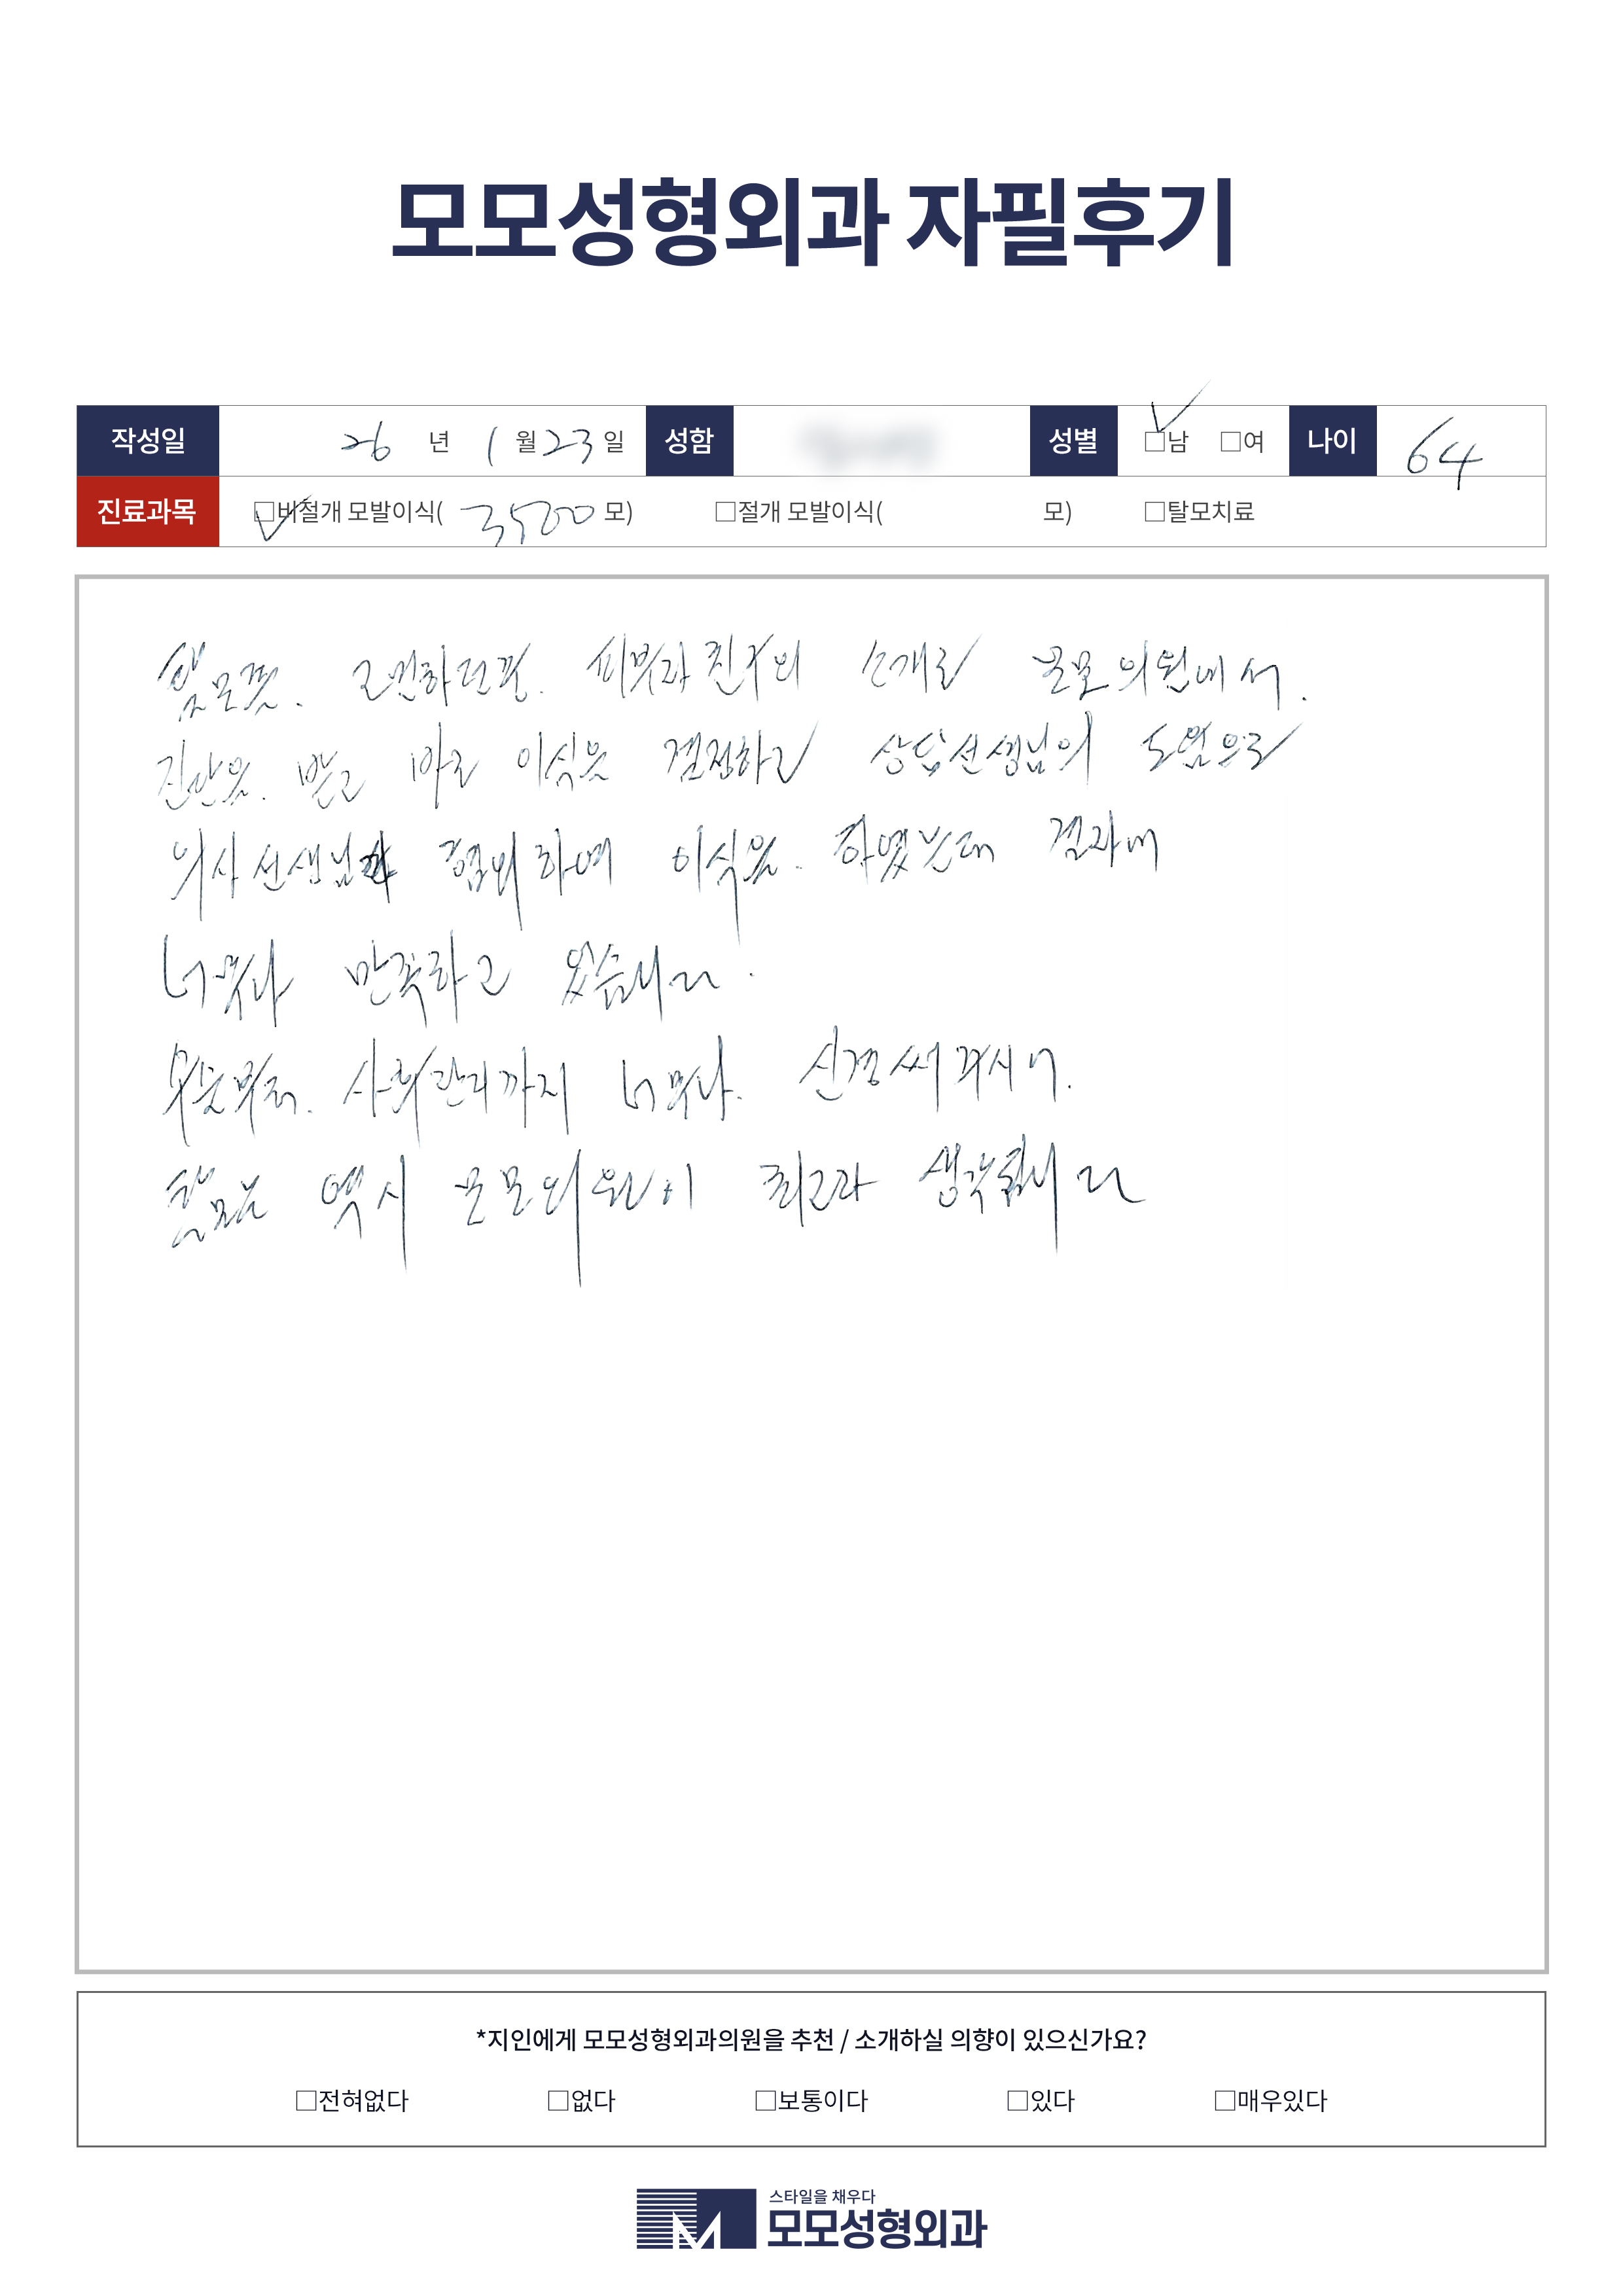 모모성형외과 자필후기
작성일 26 년 1 월 23 일 성함 성별 □남 □여 나이 64
진료과목 □비절개 모발이식( 3500 모) □절개 모발이식( 모) □탈모치료
탈모로 고민하던중. 피부과 친구의 소개로 모모의원에서.
진단을. 받고 바로 이식을 결정하고 상담선생님의 도움으로
의사선생님과 협의하에 이식을. 하였는데 결과에
너무나 만족하고 있습니다.
수술부터. 사후관리까지 너무나. 신경써주시어.
탈모는 역시 모모의원이 최고라 생각됩니다
*지인에게 모모성형외과의원을 추천 / 소개하실 의향이 있으신가요?
□전혀없다 □없다 □보통이다 □있다 □매우있다
스타일을 채우다
모모성형외과